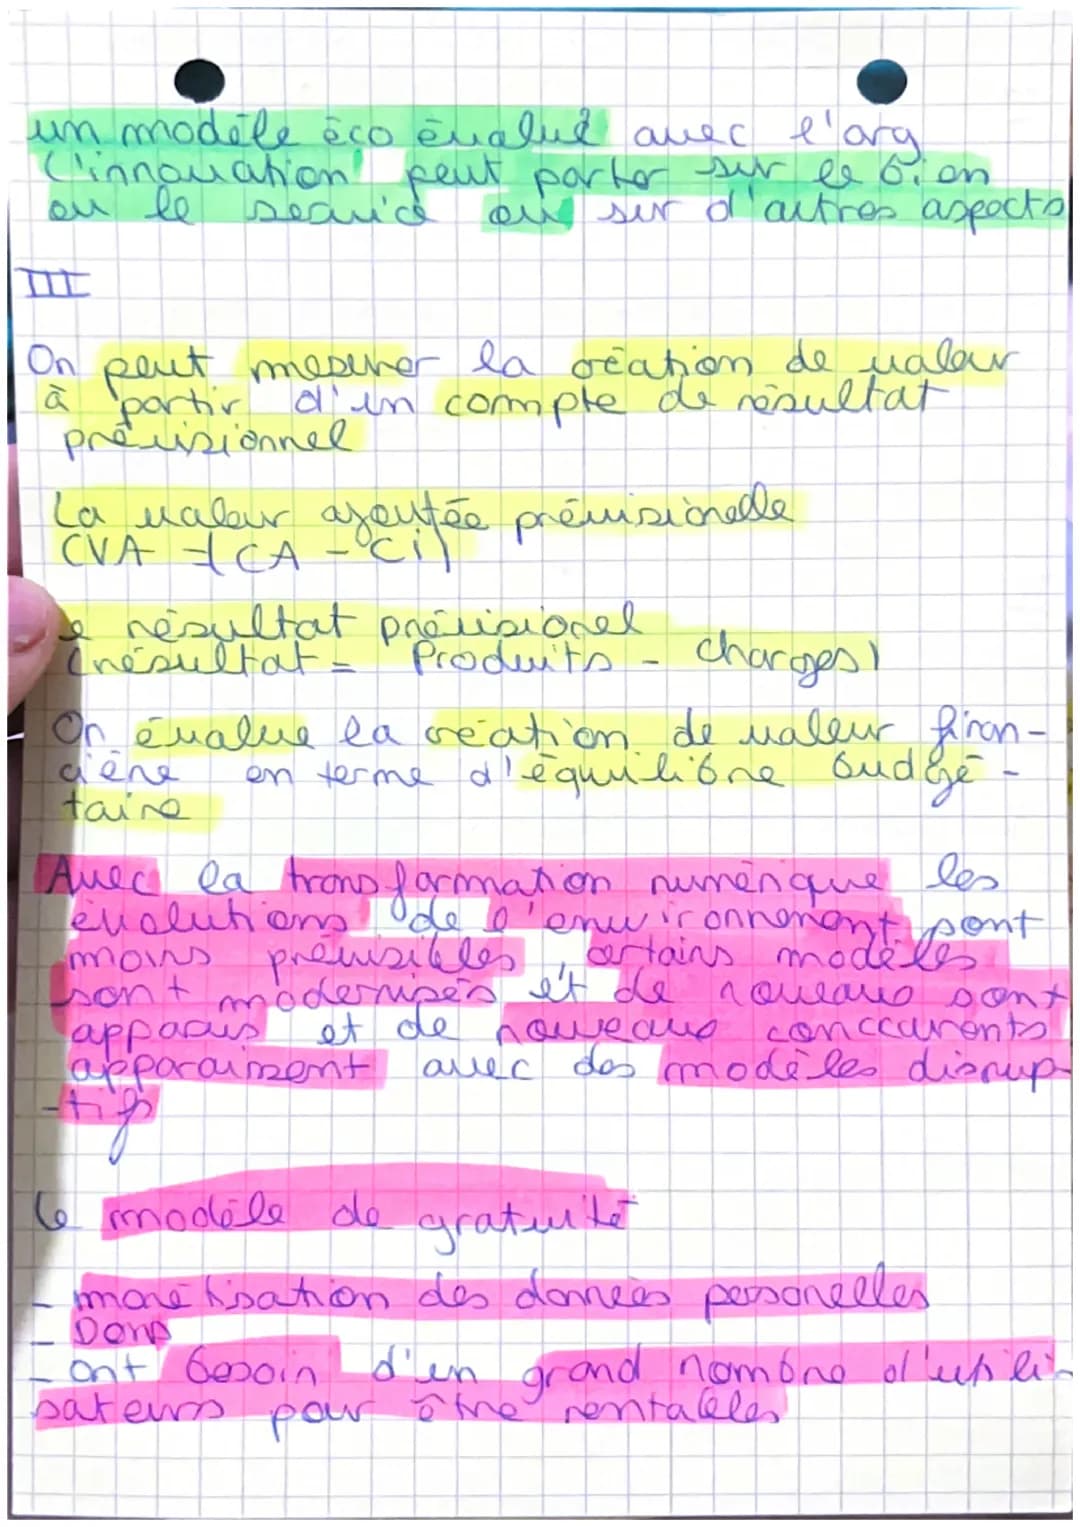 un modèle éco évalué avec l'org
L'innovation peut porter sur le bien
ou le service ou sur d'autres aspects
III
On peut mesurer la création de valeur
à partir d'un compte de résultat
prévisionnel
La valeur ajoutée prévisionelle
(VA = (CA - Ci)
e résultat prévisionel
(résultat = Produits - charges)
On évalue la création de valeur finan-
cière en terme d'équilibre budgé-
taire
Avec la transformation numérique les
évolutions de l'environnement sont
moins prévisibles, certains modèles
sont modernisés et de nouveaus sont
apparus et de nouveaus conccurents
apparaissent avec des modèles disrup-
-tifs
Le modèle de gratuité
- monétisation des données personelles
- Dons
- ont besoin d'un grand nombre d'utili-
sateurs pour être rentables